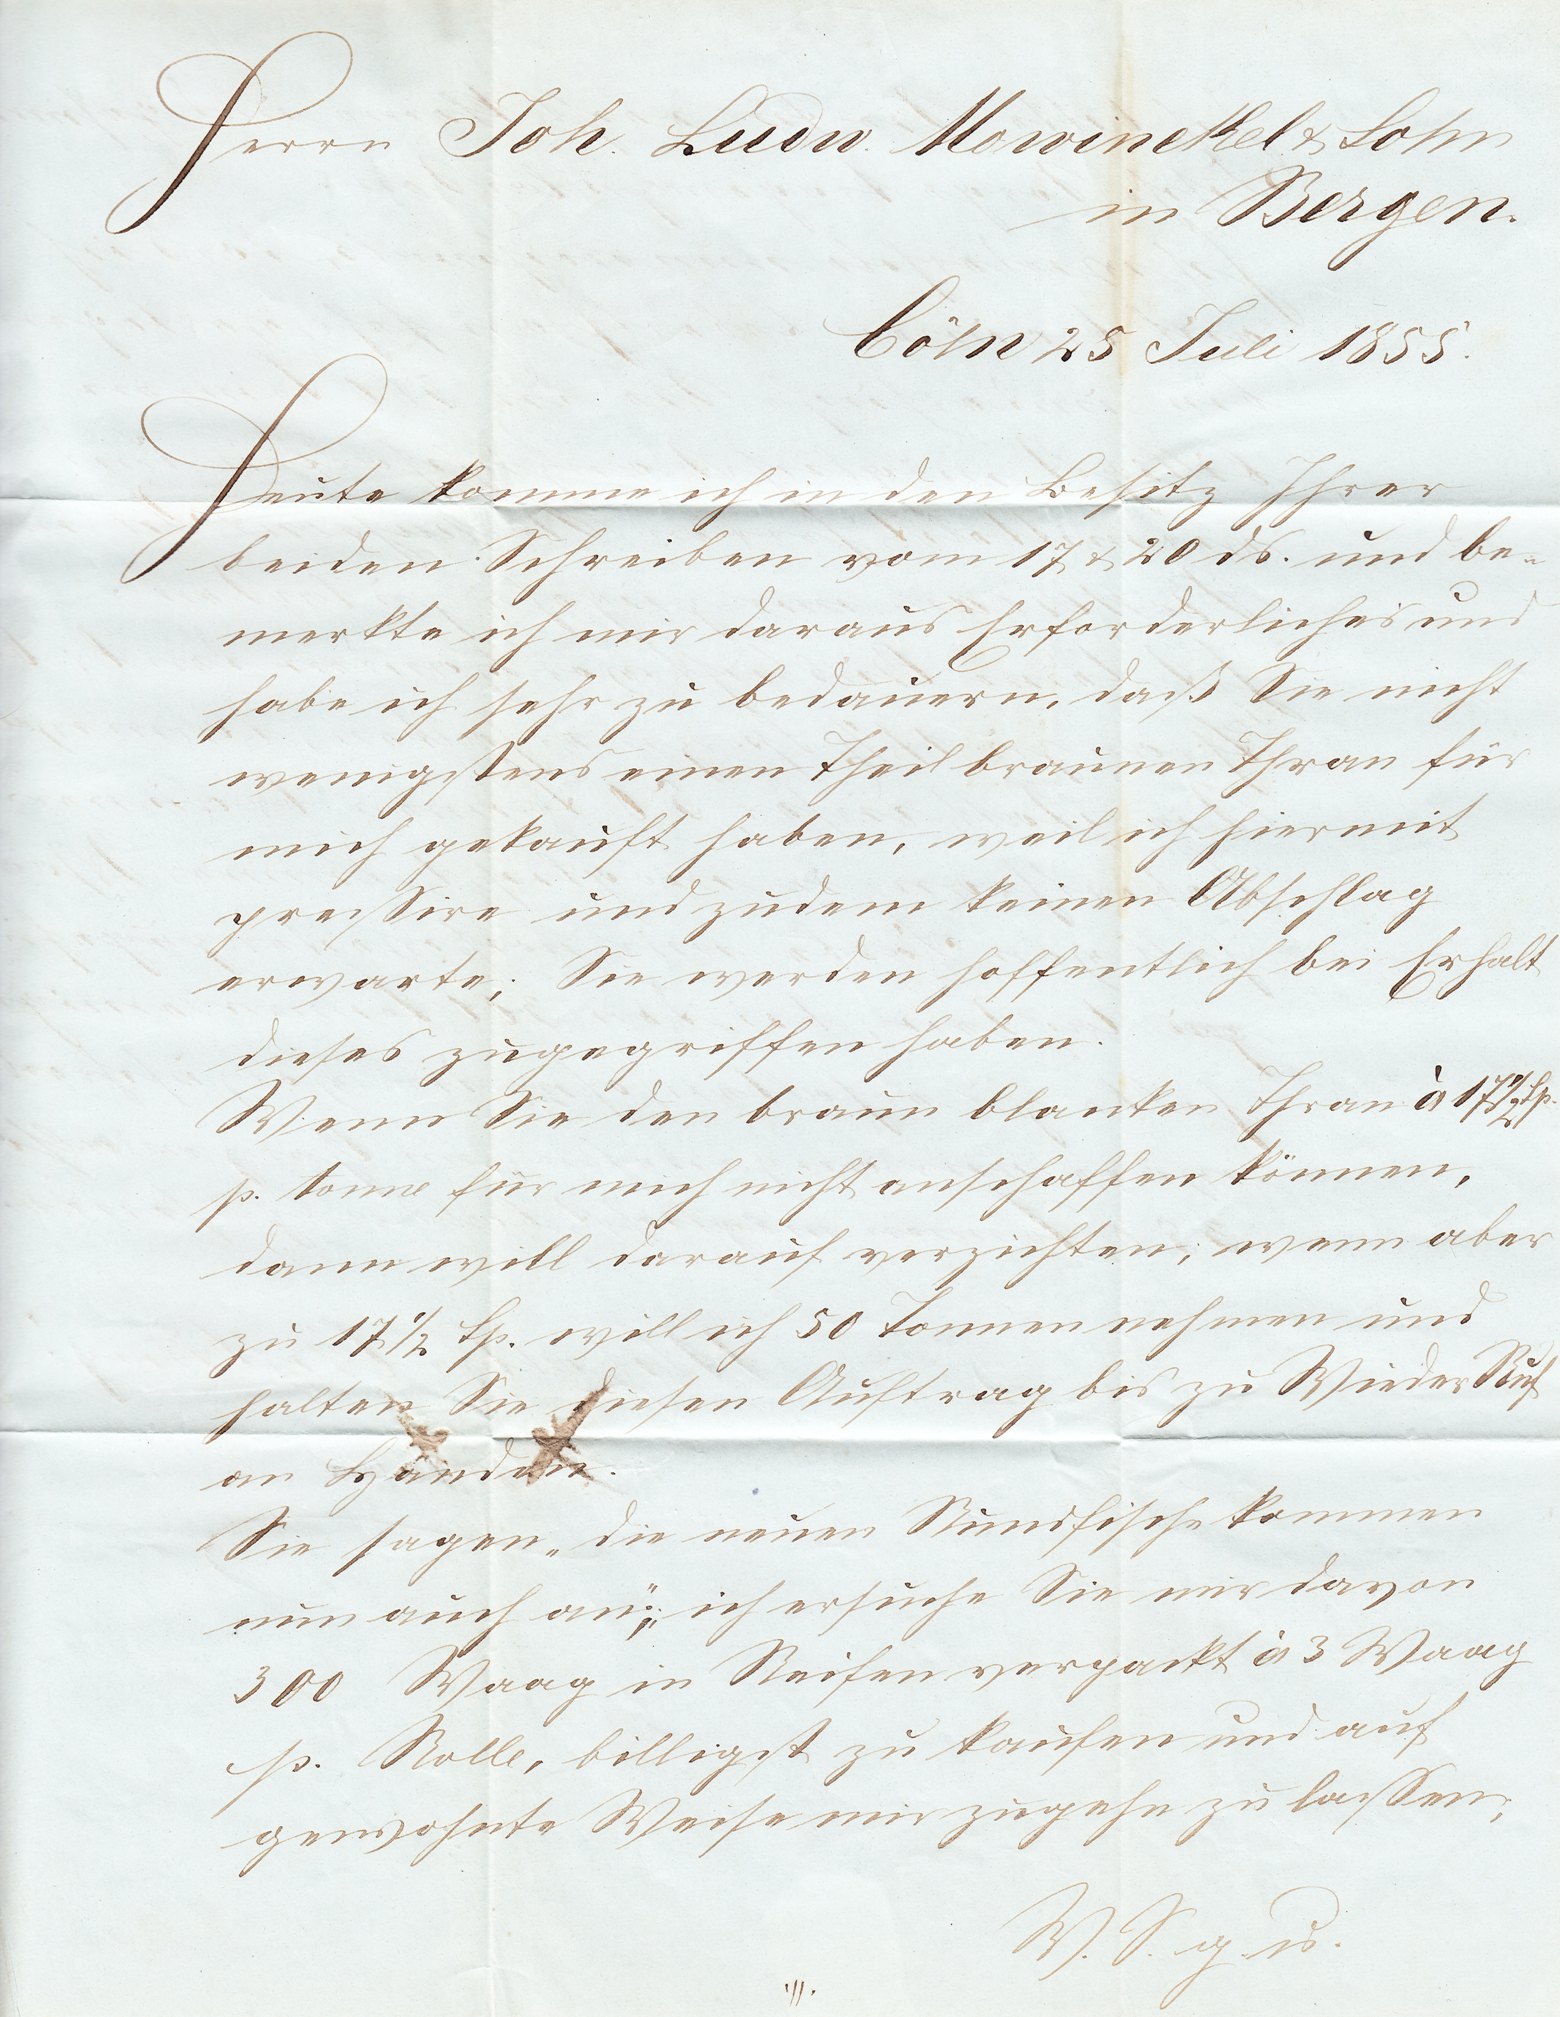 Herrn Joh. Ludw. Mowinckel & Sohn
in Bergen.
Cöln 25 Juli 1855.
Heute komme ich in den Besitz Ihrer
beiden Schreiben vom 17 & 20 ds. und be-
merkte ich mir daraus Erforderliches und
habe ich sehr zu bedauern, daß Sie nicht
wenigstens einen Theil braunen Thran für
mich gekauft haben, weil ich hiermit
pressire und zudem keinen Abschlag
erwarte; Sie werden hoffentlich bei Erhalt
dieses zugegriffen haben.
Wenn Sie den braun blanken Thran à 17 1/2 Sp.
p. Tonne für mich nicht anschaffen können,
dann will darauf verzichten; wenn aber
zu 17 1/2 Sp. will ich 50 Tonnen nehmen und
halten Sie diesen Auftrag bis zu WiederRuf
an Händen.
Sie sagen „die neuen Rundfische kommen
nun auch an“; ich ersuche Sie mir davon
300 Waag in Reifen verpackt à 3 Waag
p. Rolle, billigst zu kaufen und auf
gewohnte Weise mir zugehn zu lassen;
W. S. g. u.